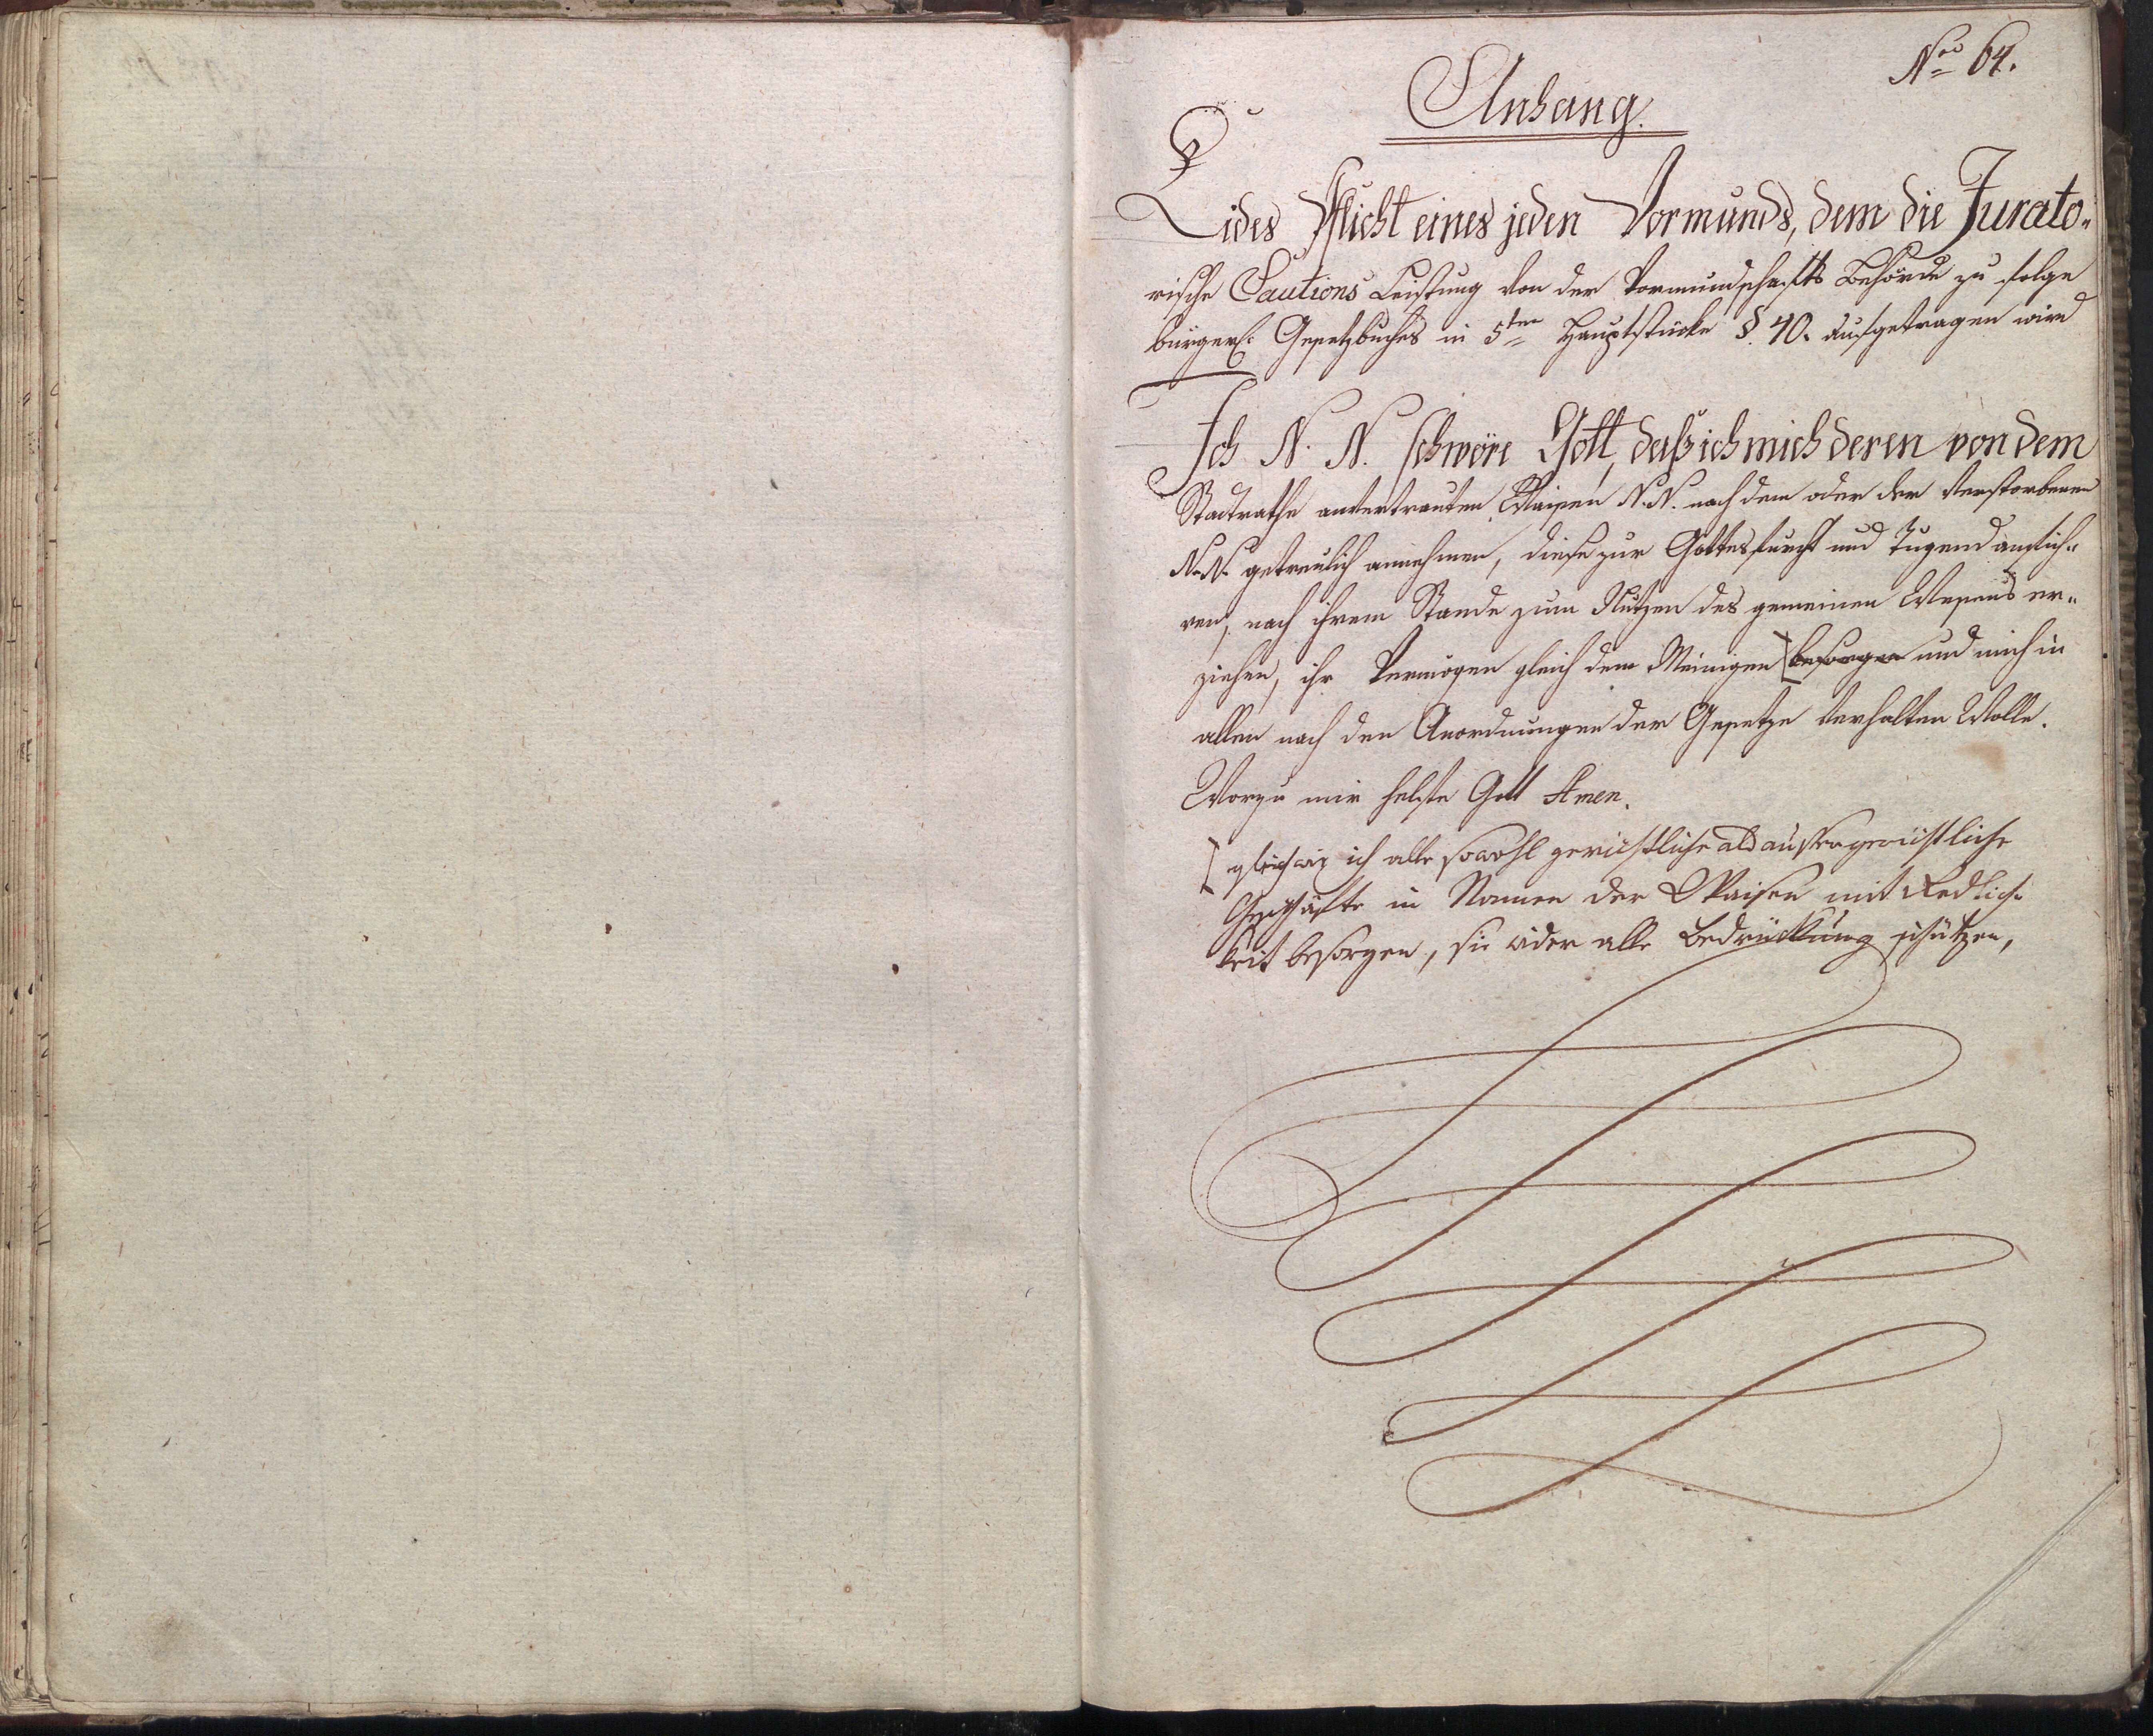 Nro 64.
Anhang.
Eides Pflicht eines jeden Vormunds, dem die Jurato-
rische Cautions Leistung von der Vormundschafts Behörde zu folge
bürgerl: Gesetzbuches in 5ten Hauptstücke §. 40. aufgetragen wird
Ich N. N. schwöre Gott, daß ich mich deren von dem
Stadtrathe anvertrauten Waisen N. N. nach dem oder der verstorbenen
N. N. getreulich annehmen, diese zur Gottesfurcht und Tugend
ren, nach ihrem Stande zum Nutzen des gemeinen Wesens er-
ziehen, ihr Vermögen gleich dem Meinigen besorgen und mich in
allen nach den Anordnungen der Gesetze verhalten Wolle.
Worzu mir helfe Gott Amen.
ich alle sowohl gerichtliche als aussergerichtliche
Geschäfte in Namen der Waisen mit Redlich-
keit besorgen, sie wider alle Bedrückung schützen,